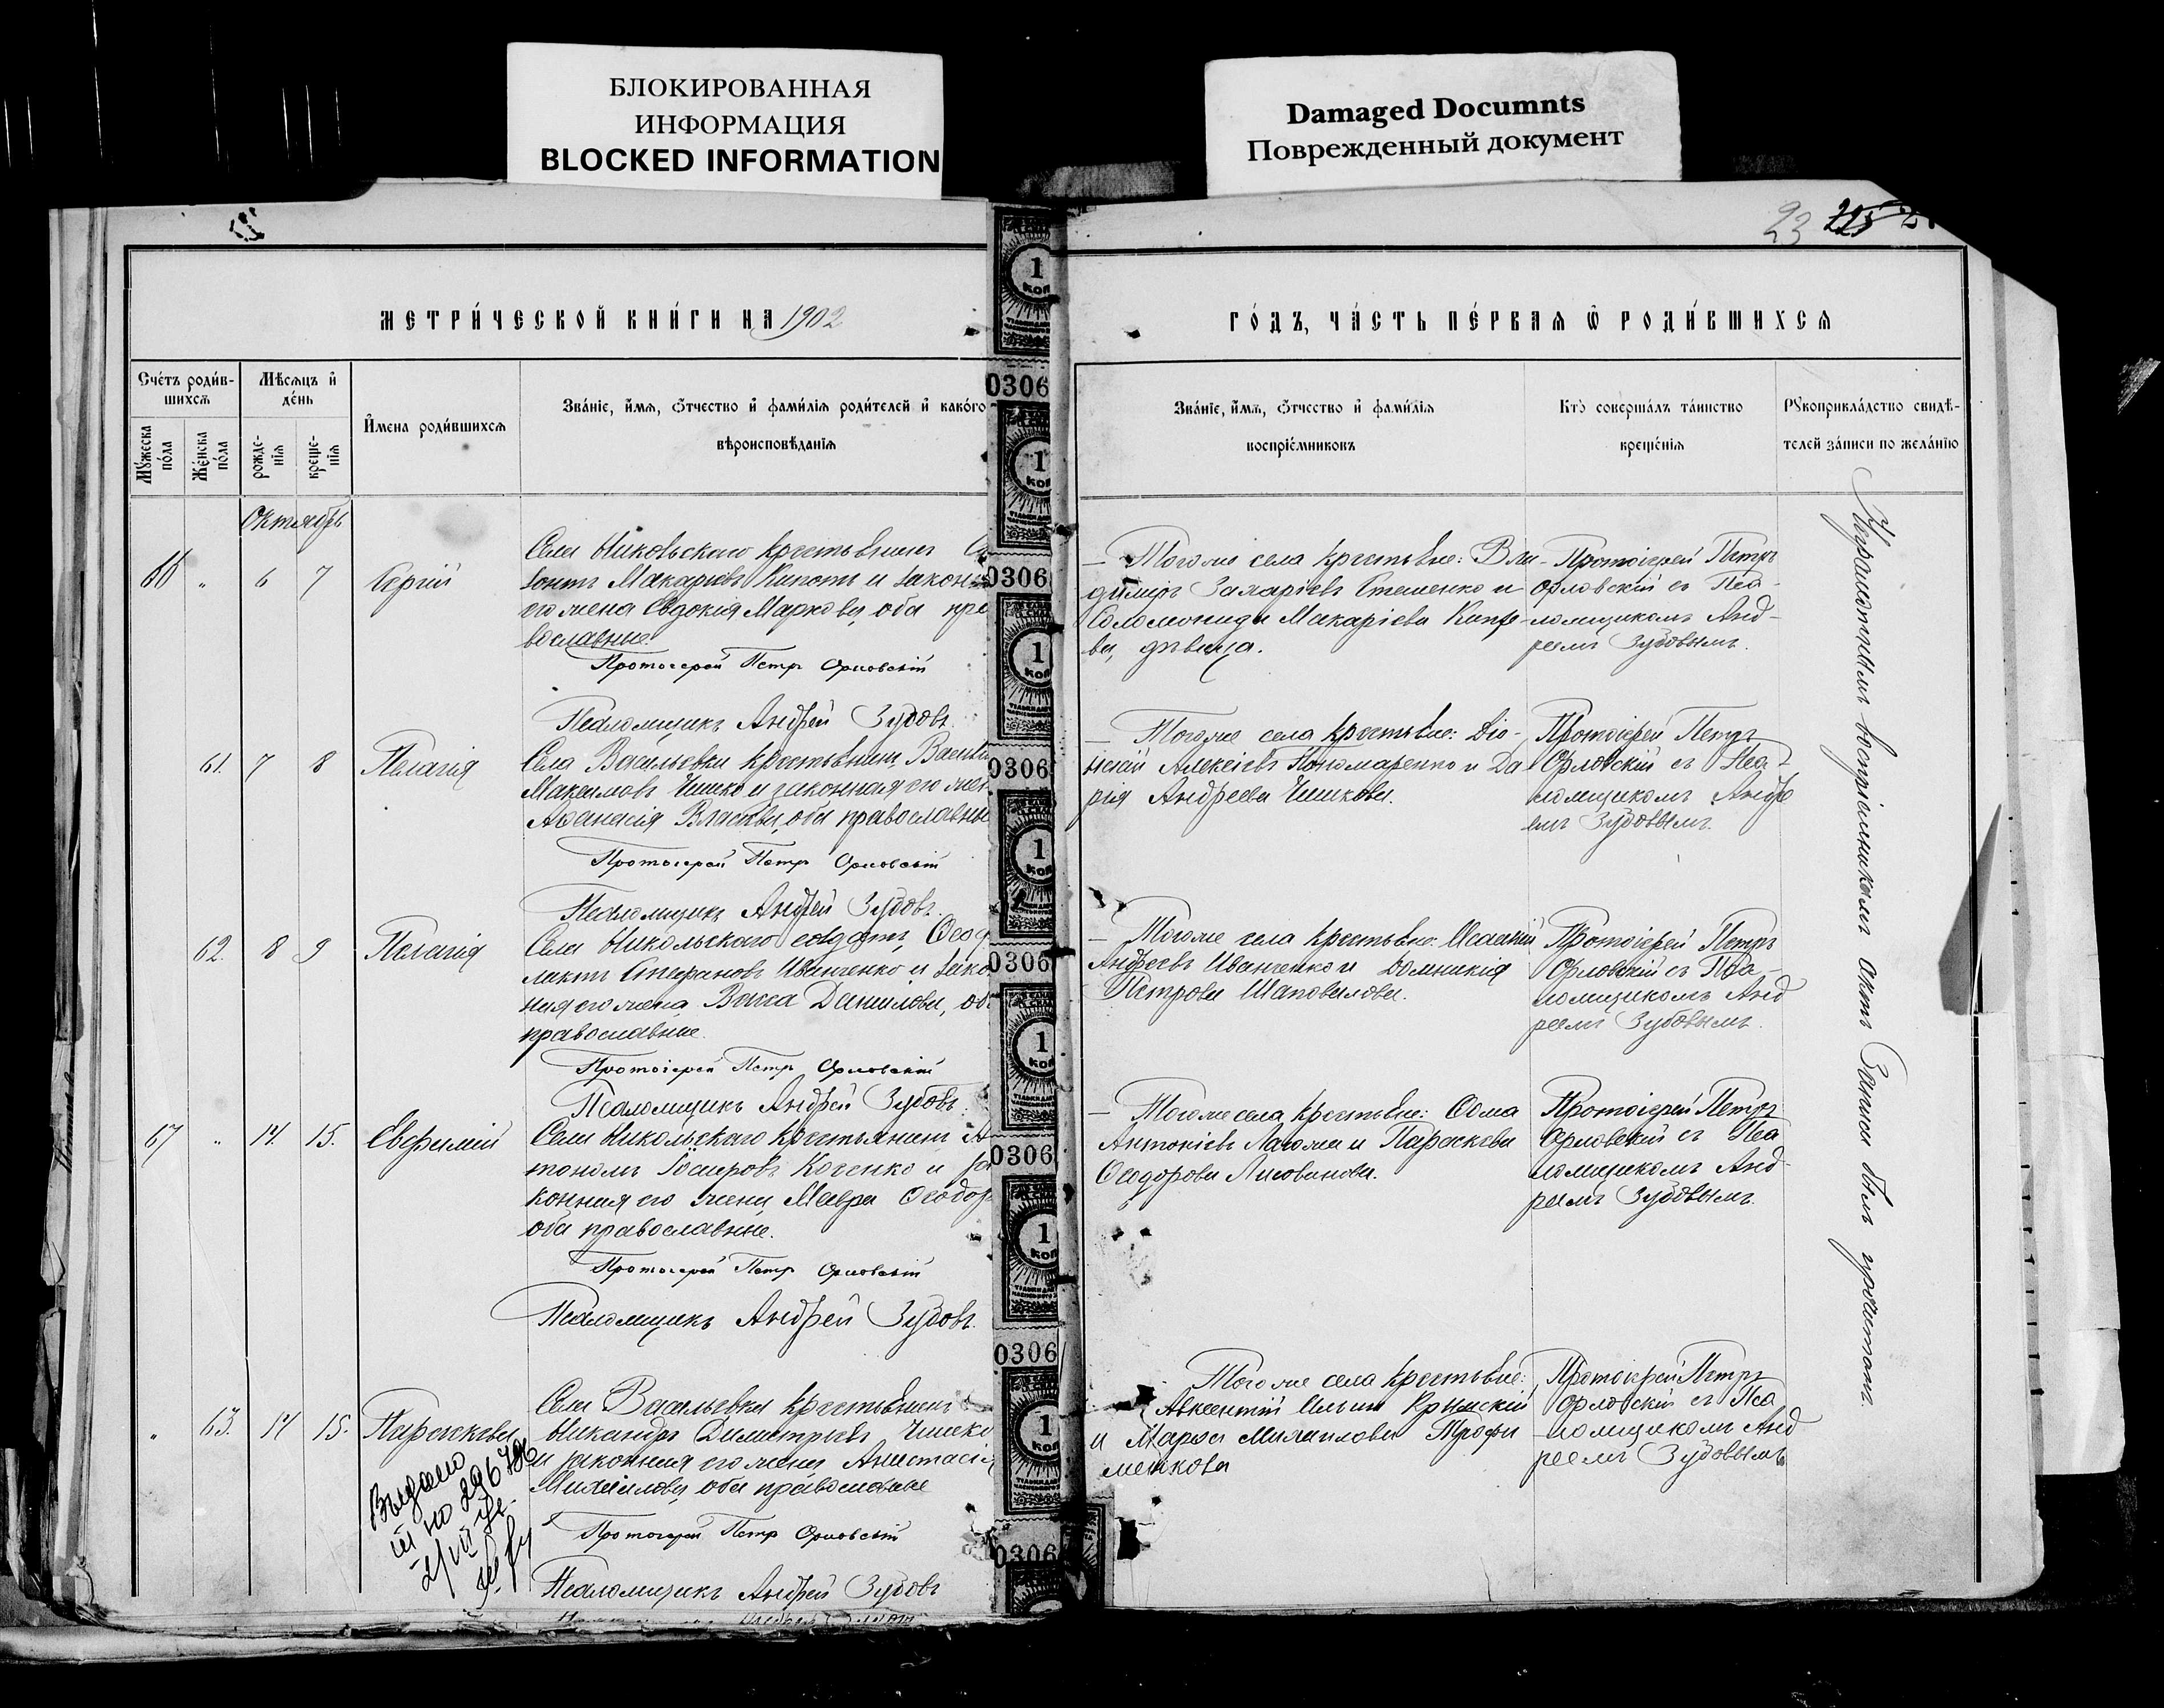 БЛОКИРОВАННАЯ
ИНФОРМАЦИЯ
BLOCKED INFORMATION
Damaged Documnts
Поврежденный документ
23 215
МЕТРИ́ЧЕСКОЙ КНИ́ГИ НА 1902
ГО́ДЪ, ЧА́СТЬ ПЕ́РВАЯ Ѿ РОДИ́ВШИХСЯ
Сче́тъ роди́в-
шихсѧ
Мѣ́сѧцъ и҆
де́нь
И҆мена роди́вшихсѧ
Зва́нїе, и҆́мѧ, ѻ҆́тчество и҆ фами́лїѧ роди́телей и҆ како́го
вѣроисповѣ́данїѧ
Мꙋ́жеска
по́ла
Же́нска
по́ла
рожде-
нїѧ
креще-
нїѧ
Зва́нїе, и҆́мѧ, ѻ҆́тчество и҆ фами́лїѧ
воспрїе́мниковъ
Кто̀ соверша́лъ та́инство
креще́нїѧ
Рꙋкоприкла́дство свидѣ́-
телей за́писи по жела́нїю
Октябрь
66 " 6 7 Сергій
Села Никольскаго крестьянинъ
Макаріевъ Кипоть и закон
его жена Евдокія Маркова, оба пра
вославные.
Протоіерей Петръ Орловскій
Псаломщикъ Андрей Зубовъ.
— Того же села крестьяне: Вла
диміръ Захаріевъ Стешенко и
Соломонида Макаріева
ва, дѣвица.
Протоіерей Петръ
Орловскій съ Пса-
ломщикомъ Анд-
реемъ Зубовымъ.
61. 7 8 Пелагія
Села Васильевки крестьянинъ
Максимовъ Чишко и законная его жен
Аѳанасія Власова, оба православные
Протоіерей Петръ Орловскій
Псаломщикъ Андрей Зубовъ.
— Того же села крестьяне: Діо-
нисій Алексіевъ Пономаренко и Да
рія Андреева Чишкова.
Протоіерей Петръ
Орловскій съ Пса-
ломщикомъ Андре
емъ Зубовымъ.
62. 8 9 Пелагія
Села Никольскаго солдатъ Ѳеоф
лактъ Стефановъ Иванченко и зако
ная его жена Васса Данилова, об
православные.
Протоіерей Петръ Орловскій
Псаломщикъ Андрей Зубовъ.
— Того же села крестьяне: Исаакій
Андреевъ Иванченко и Домникія
Петрова Шаповалова.
Протоіерей Петръ
Орловскій съ Пса-
ломщикомъ Анд
реемъ Зубовымъ.
67 " 14. 15. Евфимій
Села Никольскаго крестьянинъ А
тономъ Коченко и за
конная его жена Мавра Ѳеодор
оба православные.
Протоіерей Петръ Орловскій
Псаломщикъ Андрей Зубовъ.
— Того же села крестьяне: Ѳома
Антоніевъ Лагома и Параскева
Ѳеодорова
Протоіерей Петръ
Орловскій съ Пса
ломщикомъ Анд-
реемъ Зубовымъ.
" 63. 14 15. Параскева
Села Васильевки крестьянинъ
Никандръ Димитріевъ Чишко
и законная его жена Анастасія
Михайлова, оба православные
Протоіерей Петръ Орловскій
Псаломщикъ Андрей Зубовъ
Того же села крестьяне:
Авксентій Ильинъ Крымскій
и Марѳа Михаилова Трофи
менкова
Протоіерей Петръ
Орловскій съ Пса
ломщикомъ Анд
реемъ Зубовымъ
Выдано
по 296
Неграмотнымъ воспріемникамъ актъ записи былъ прочитанъ.
1 КОП
0306
0306
0306
0306
0306
0306
0306